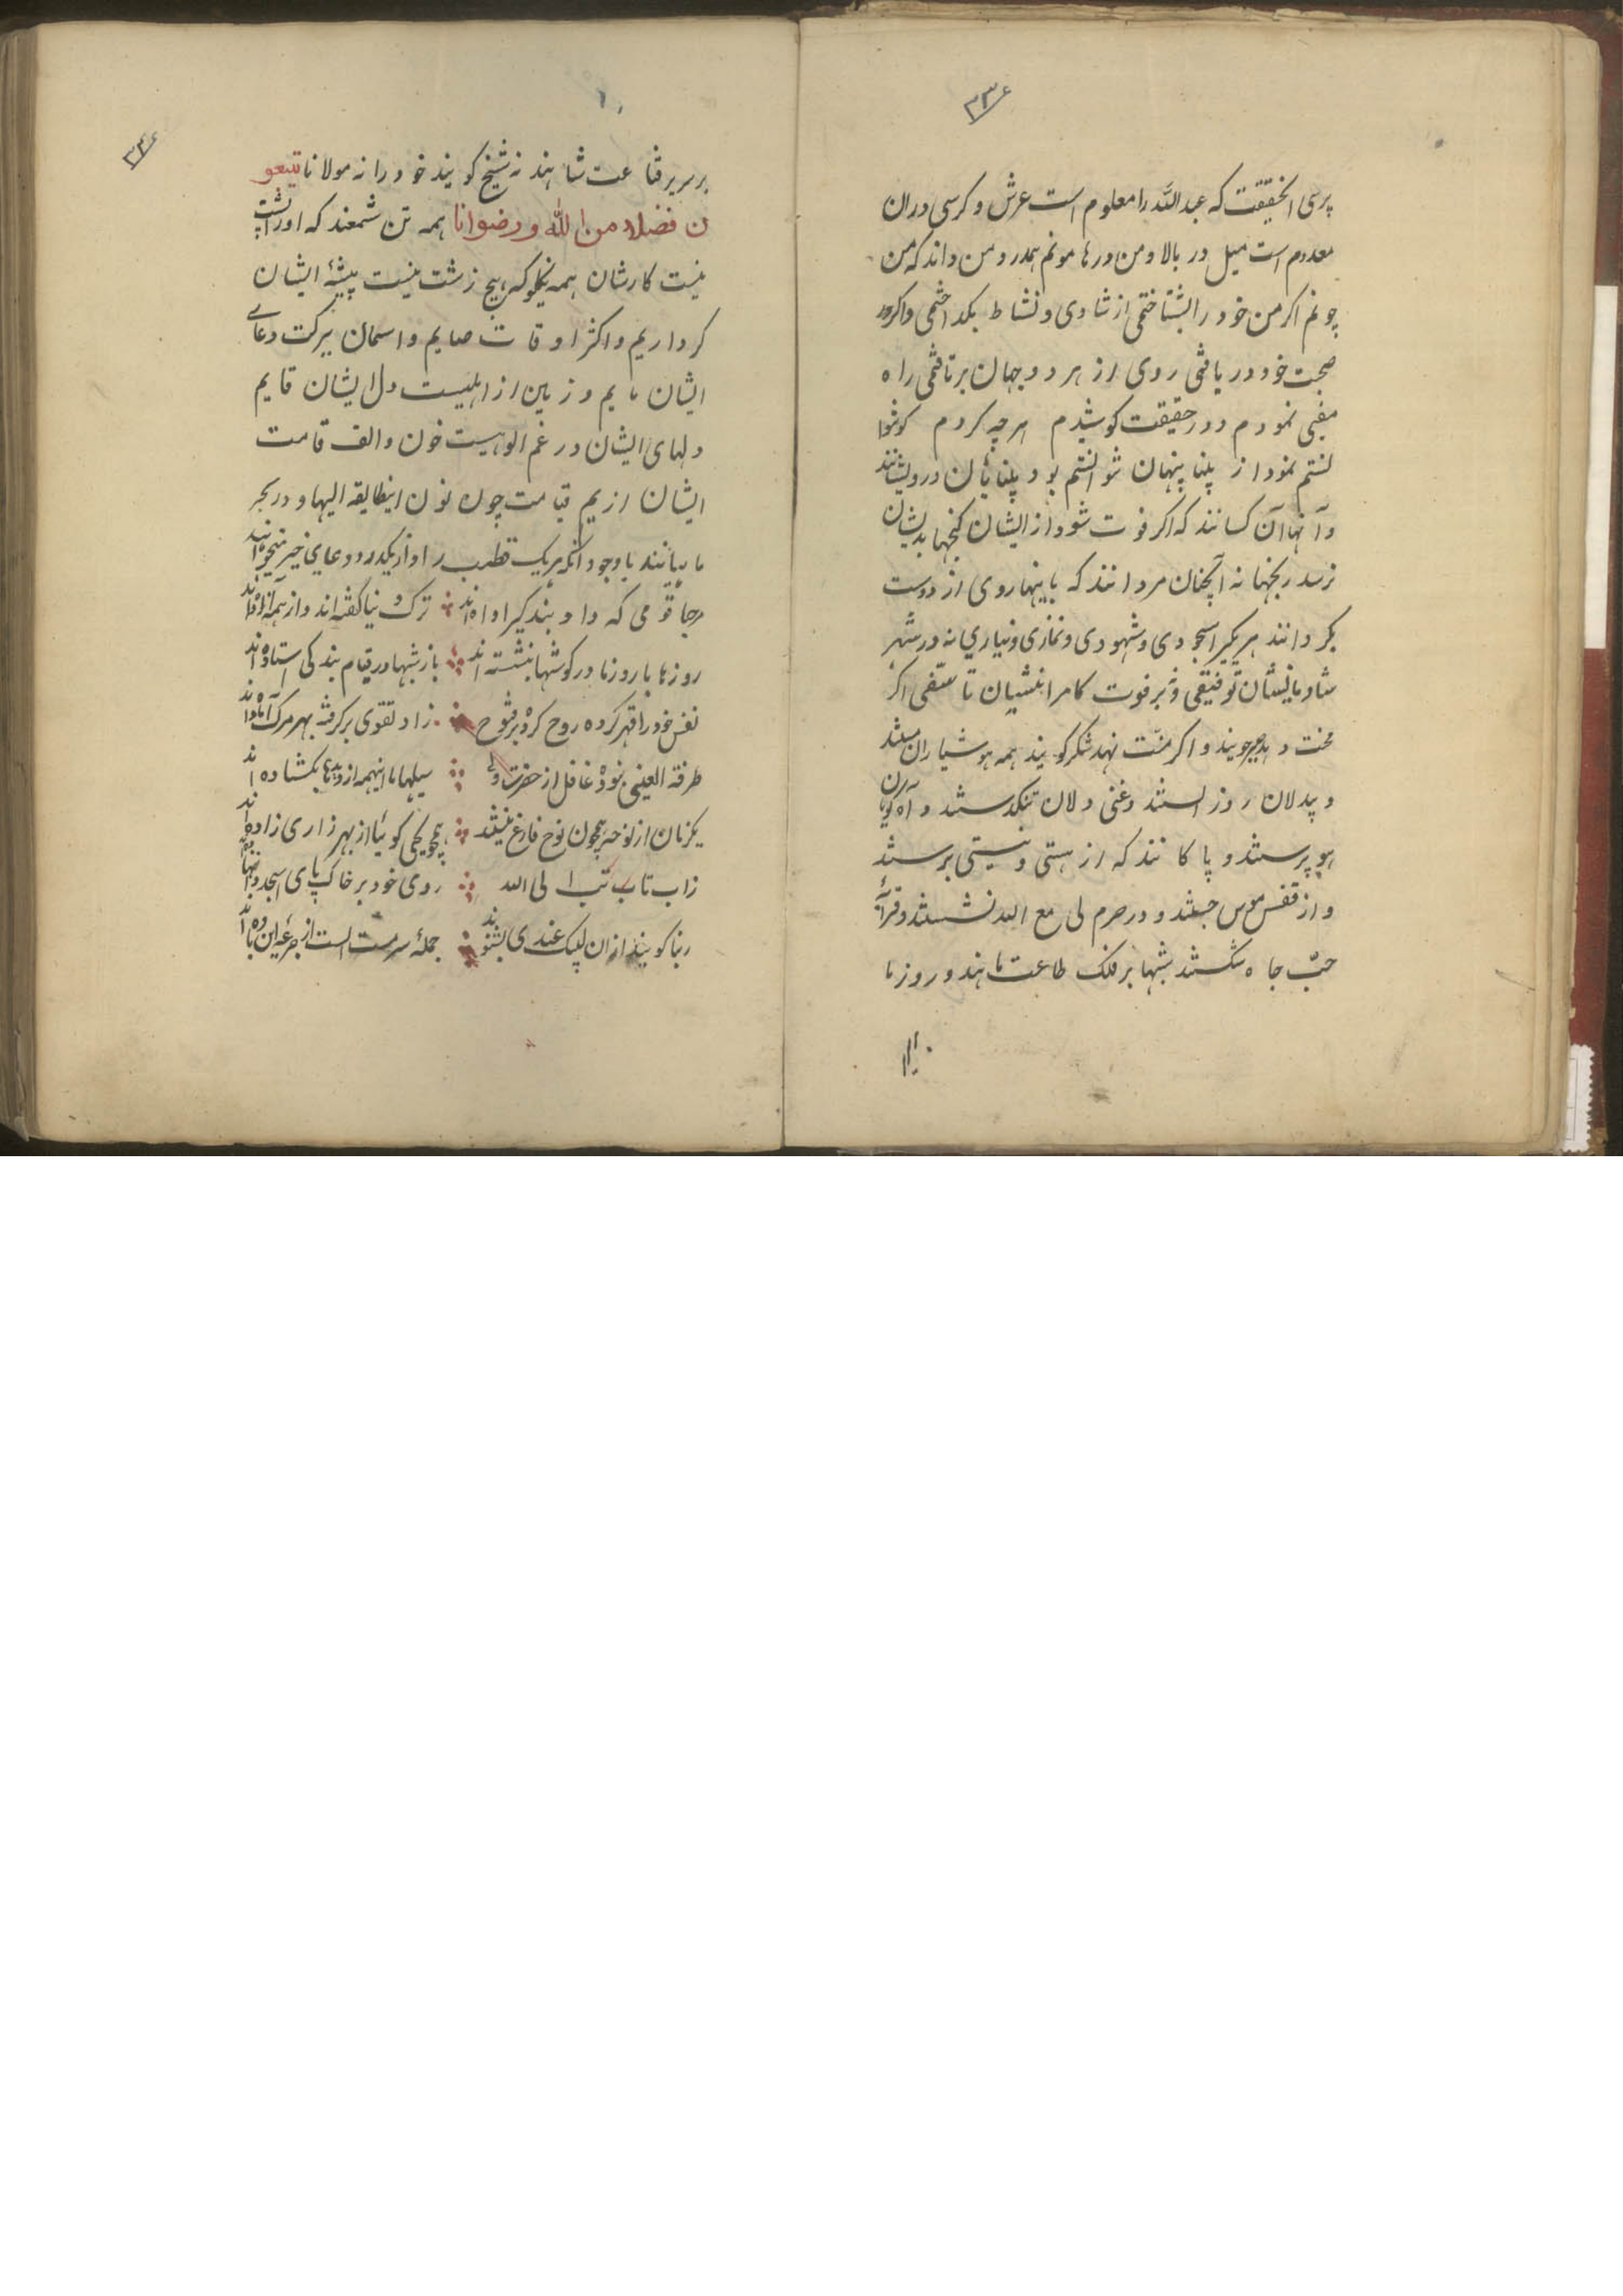 ۳۳۶
پرسی الحقیقت که عبدالله را معلوم است عرش و کرسی در ان
معدوم است میل در بالا و من در ها مونم همدرد من داند که من
چونم اگر من خود را بشناختمی از شادی و نشاط بگداختمی و اگر در
صحبت خود دریافتمی روی از هر دو جهان برتافتمی راه
نمودم و در حقیقت کوشیدم هرچه کردم
نمود از پنهان بود درویشانند
و آنها آن کسانند که اگر فوت شود از ایشان گنجها بدیشان
نرسد رنجها نه آنچنان مردانند که باینها روی از دوست
بگردانند هر یکیرا سجودی و شهودی و نمازی و نیازی نه در شهر
شادمانیشان توفیقی و نه بر فوت کامرانیشان تاسفی اگر
محنت دهد جویند و اگر منّت نهد شکر گویند همه هوشیاران مستند
و بیدلان روز الستند و غنی دلان تنگدستند و
هو پرستند و پاکانند که از هستی و نیستی برستند
و از قفس هوس جستند و در حرم لی مع الله نشستند و
حبّ جاه شکستند شبها بر فلک طاعت ماهند و روزها
بر سریر قناعت شاهند نه شیخ گویند خود را نه مولانا یبتغو
ن فضلا من الله و رضوانا همه تن شمعند که او را پشت
نیست کارشان همه نیکو که هیچ زشت نیست پیشهٔ ایشان
کرداریم و اکثر اوقات صایم و اسمان ببرکت دعای
ایشان دایم و زمین از اهلیت دل ایشان قایم
دلهای ایشان در غم الوهیت خون و الف قامت
ایشان از بیم قیامت چون نون اینطایفه الیها و در بحر
ماهیانند با وجود آنکه هر یک قطب‌ند او از یکدیگر دعای خیر میخواهند
مرحبا قومی که داد بندگی را داده‌اند ترک دنیا گفته‌اند و از همه آزاده‌اند
روزها با روزها در گوشها بنشسته‌اند باز شبها در قیام بندگی استاده‌اند
نفس خود را قهر کرده روح کرده بر فتوح زاد تقوی برگرفته بهر مرگ آماده‌اند
طرفة العینی نبوده غافل از حضرت ولی سیلها با اینهمه از دیدها بگشاده‌اند
یکزمان از نوحه همچون نوح فارغ نیستند همچو یحیی گوئیا از بهر زاری زاده‌اند
زاب تاب تبت الی الله روی خود بر خاکپای اسجدوا بنهاده‌اند
ربنا گویند ازان لبیک عندی بشنوند جملهٔ سرمست الست از جرعهٔ این باده‌اند